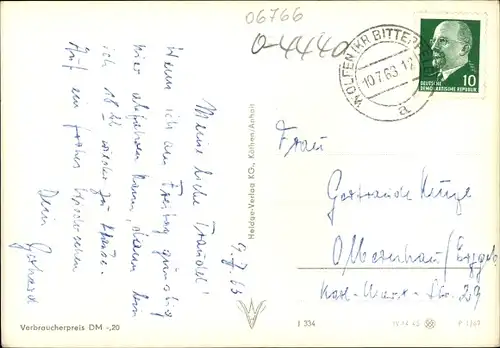 06766
0-4440
WOLFEN (KR. BITTERF
10.7.63-12
a
10
DEUTSCHE
DEMOKRATISCHE REPUBLIK
9.7.63
Meine liebe Traudel!
Wenn ich am Freitag günstig
hier abfahren kann, dann bin
ich 18 Uhr wieder zu Hause.
Auf ein frohes Wiedersehen
Dein Gerhard
Heldge-Verlag KG., Köthen/Anhalt
Frau
Gertraude Kunze
Olbernhau/Erzgeb
Karl-Marx-Str. 29
Verbraucherpreis DM -,20
I 334